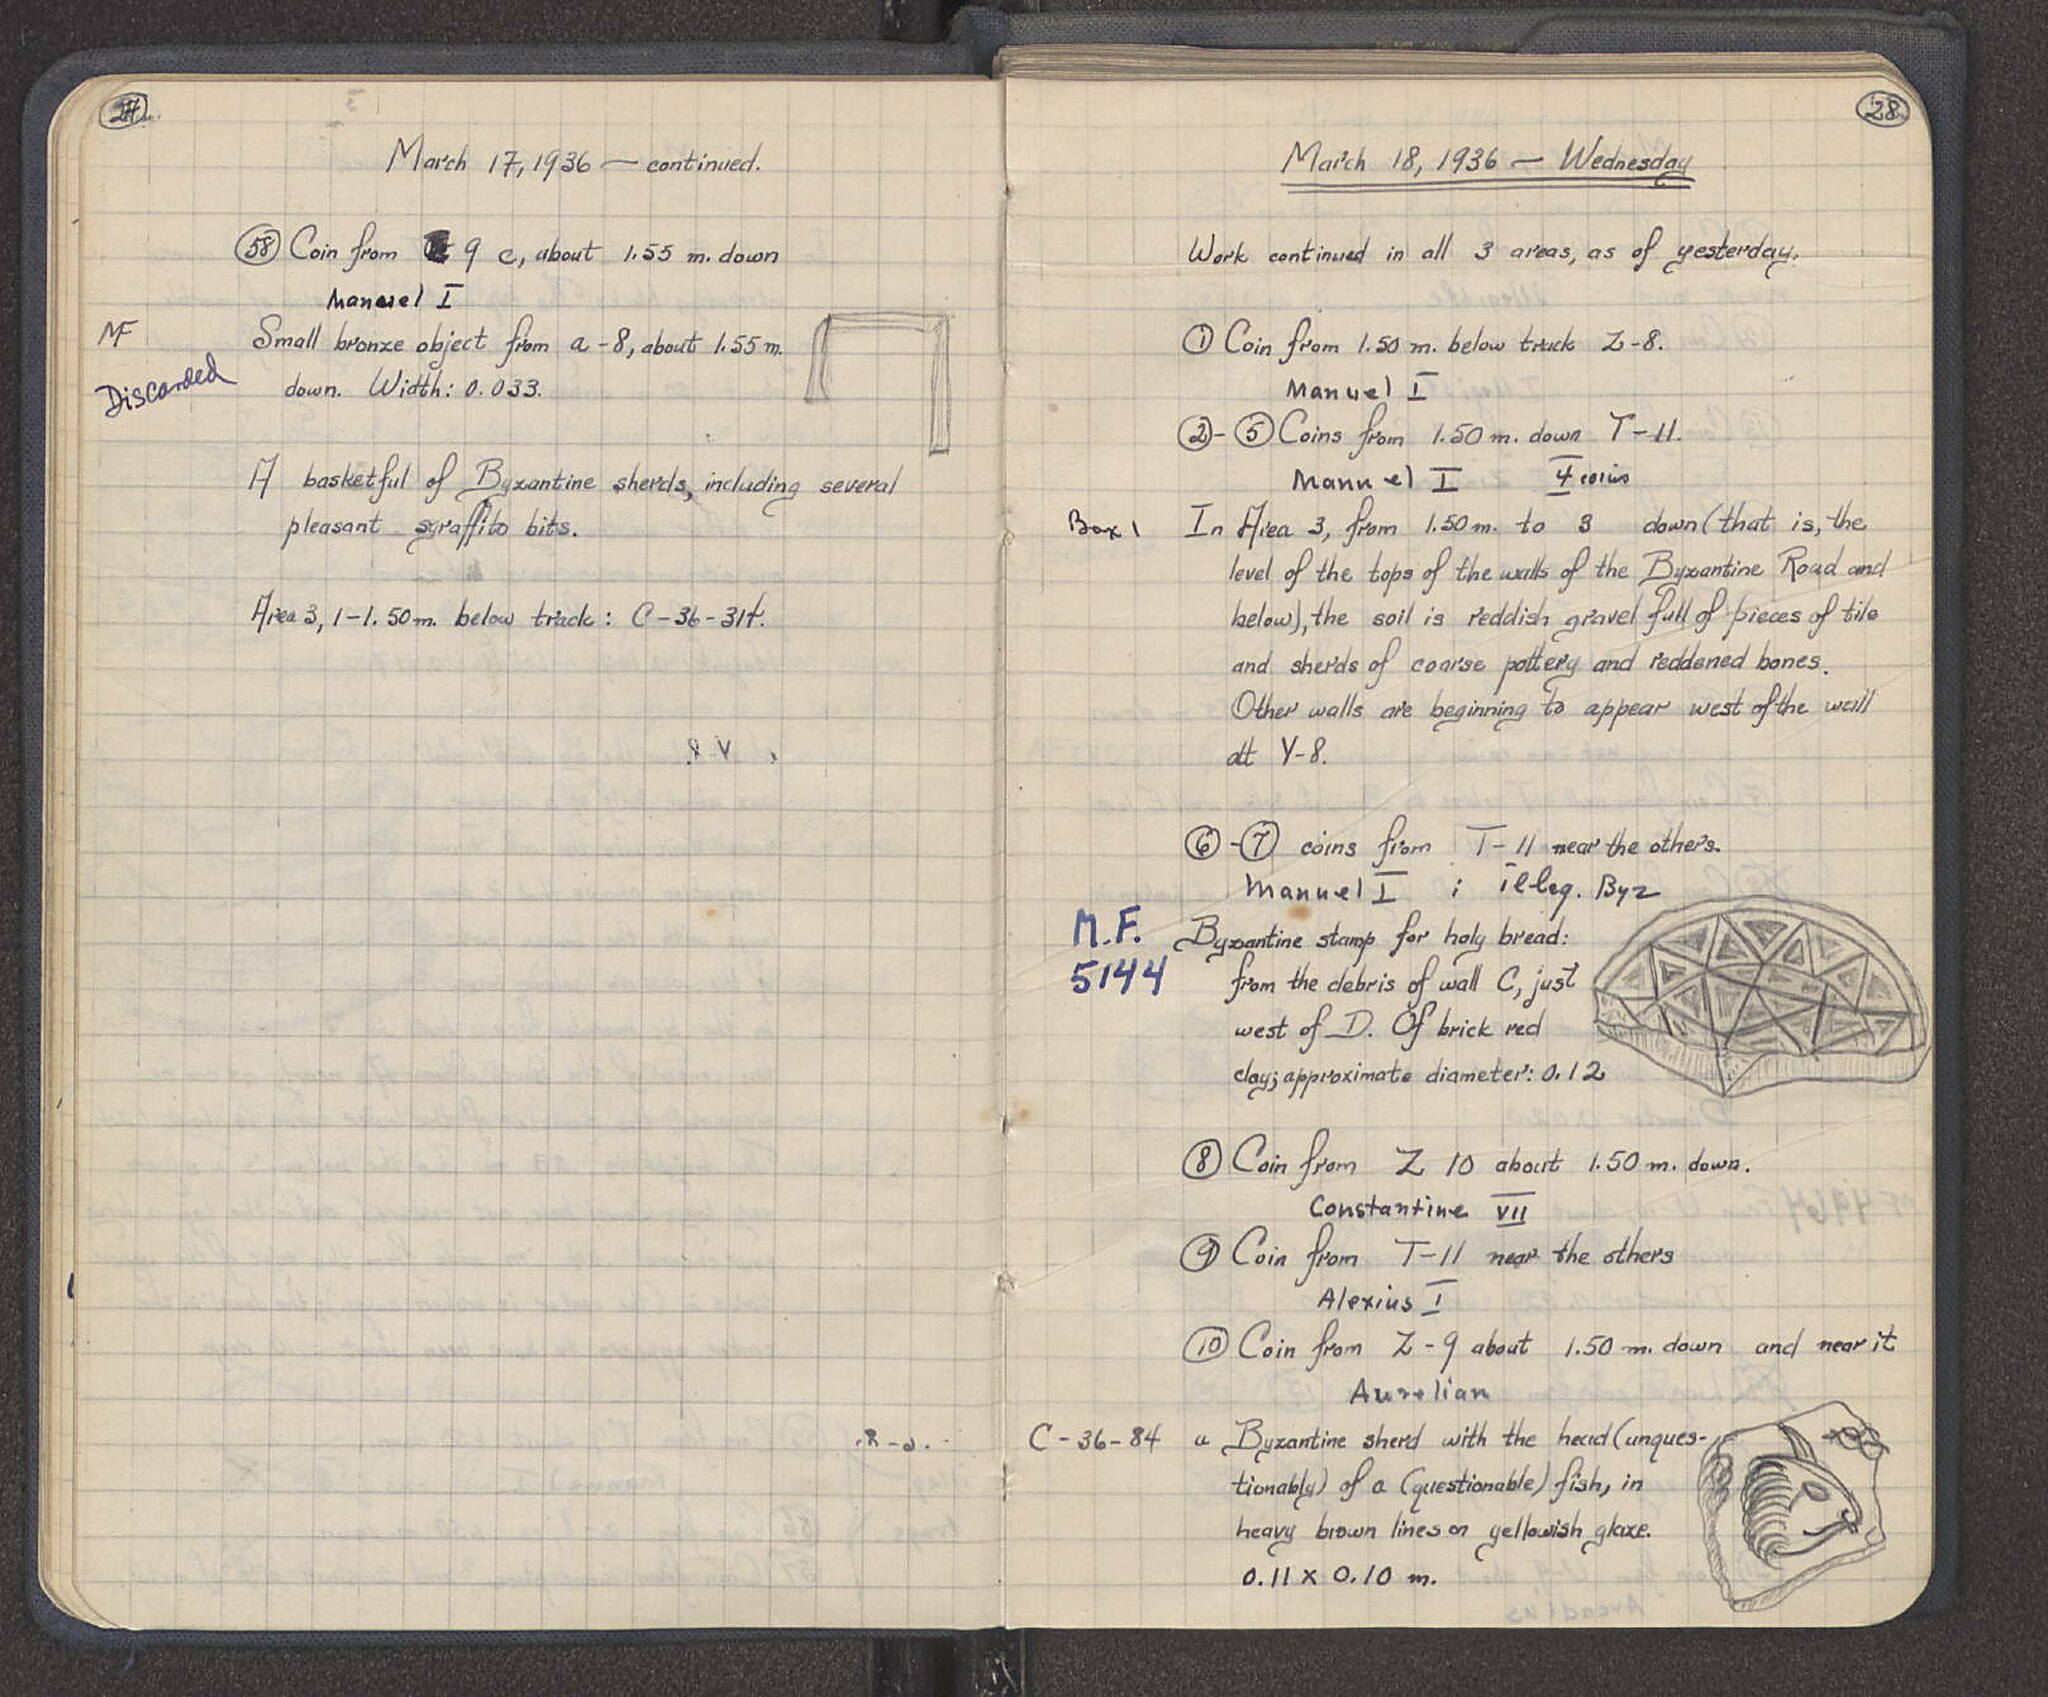 27
March 17, 1936 — continued.
58 Coin from 9 c, about 1.55 m. down
Manuel I
MF
Small bronze object from a-8, about 1.55 m.
Discarded
down. Width: 0.033.
A basketful of Byzantine sherds, including several
pleasant sgraffito bits.
Area 3, 1-1.50 m. below track:
28
March 18, 1936 — Wednesday
Work continued in all 3 areas, as of yesterday.
1 Coin from 1.50 m. below track Z-8.
Manuel I
2 - 5 Coins from 1.50 m. down T-11.
Manuel I 4 coins
Box 1
In Area 3, from 1.50 m. to 3 down (that is, the
level of the tops of the walls of the Byzantine Road and
below), the soil is reddish gravel full of pieces of tile
and sherds of coarse pottery and reddened bones.
Other walls are beginning to appear west of the wall
at Y-8.
6 - 7 coins from T-11 near the others.
Manuel I ; illeg. Byz
M.F.
5144
Byzantine stamp for holy bread:
from the debris of wall C, just
west of D. Of brick red
clay; approximate diameter: 0.12
8 Coin from Z 10 about 1.50 m. down.
Constantine VII
9 Coin from T-11 near the others
Alexius I
10 Coin from Z-9 about 1.50 m. down and near it
Aurelian
C-36-84 a Byzantine sherd with the head (unques-
tionably) of a (questionable) fish, in
heavy brown lines on yellowish glaze.
0.11 x 0.10 m.